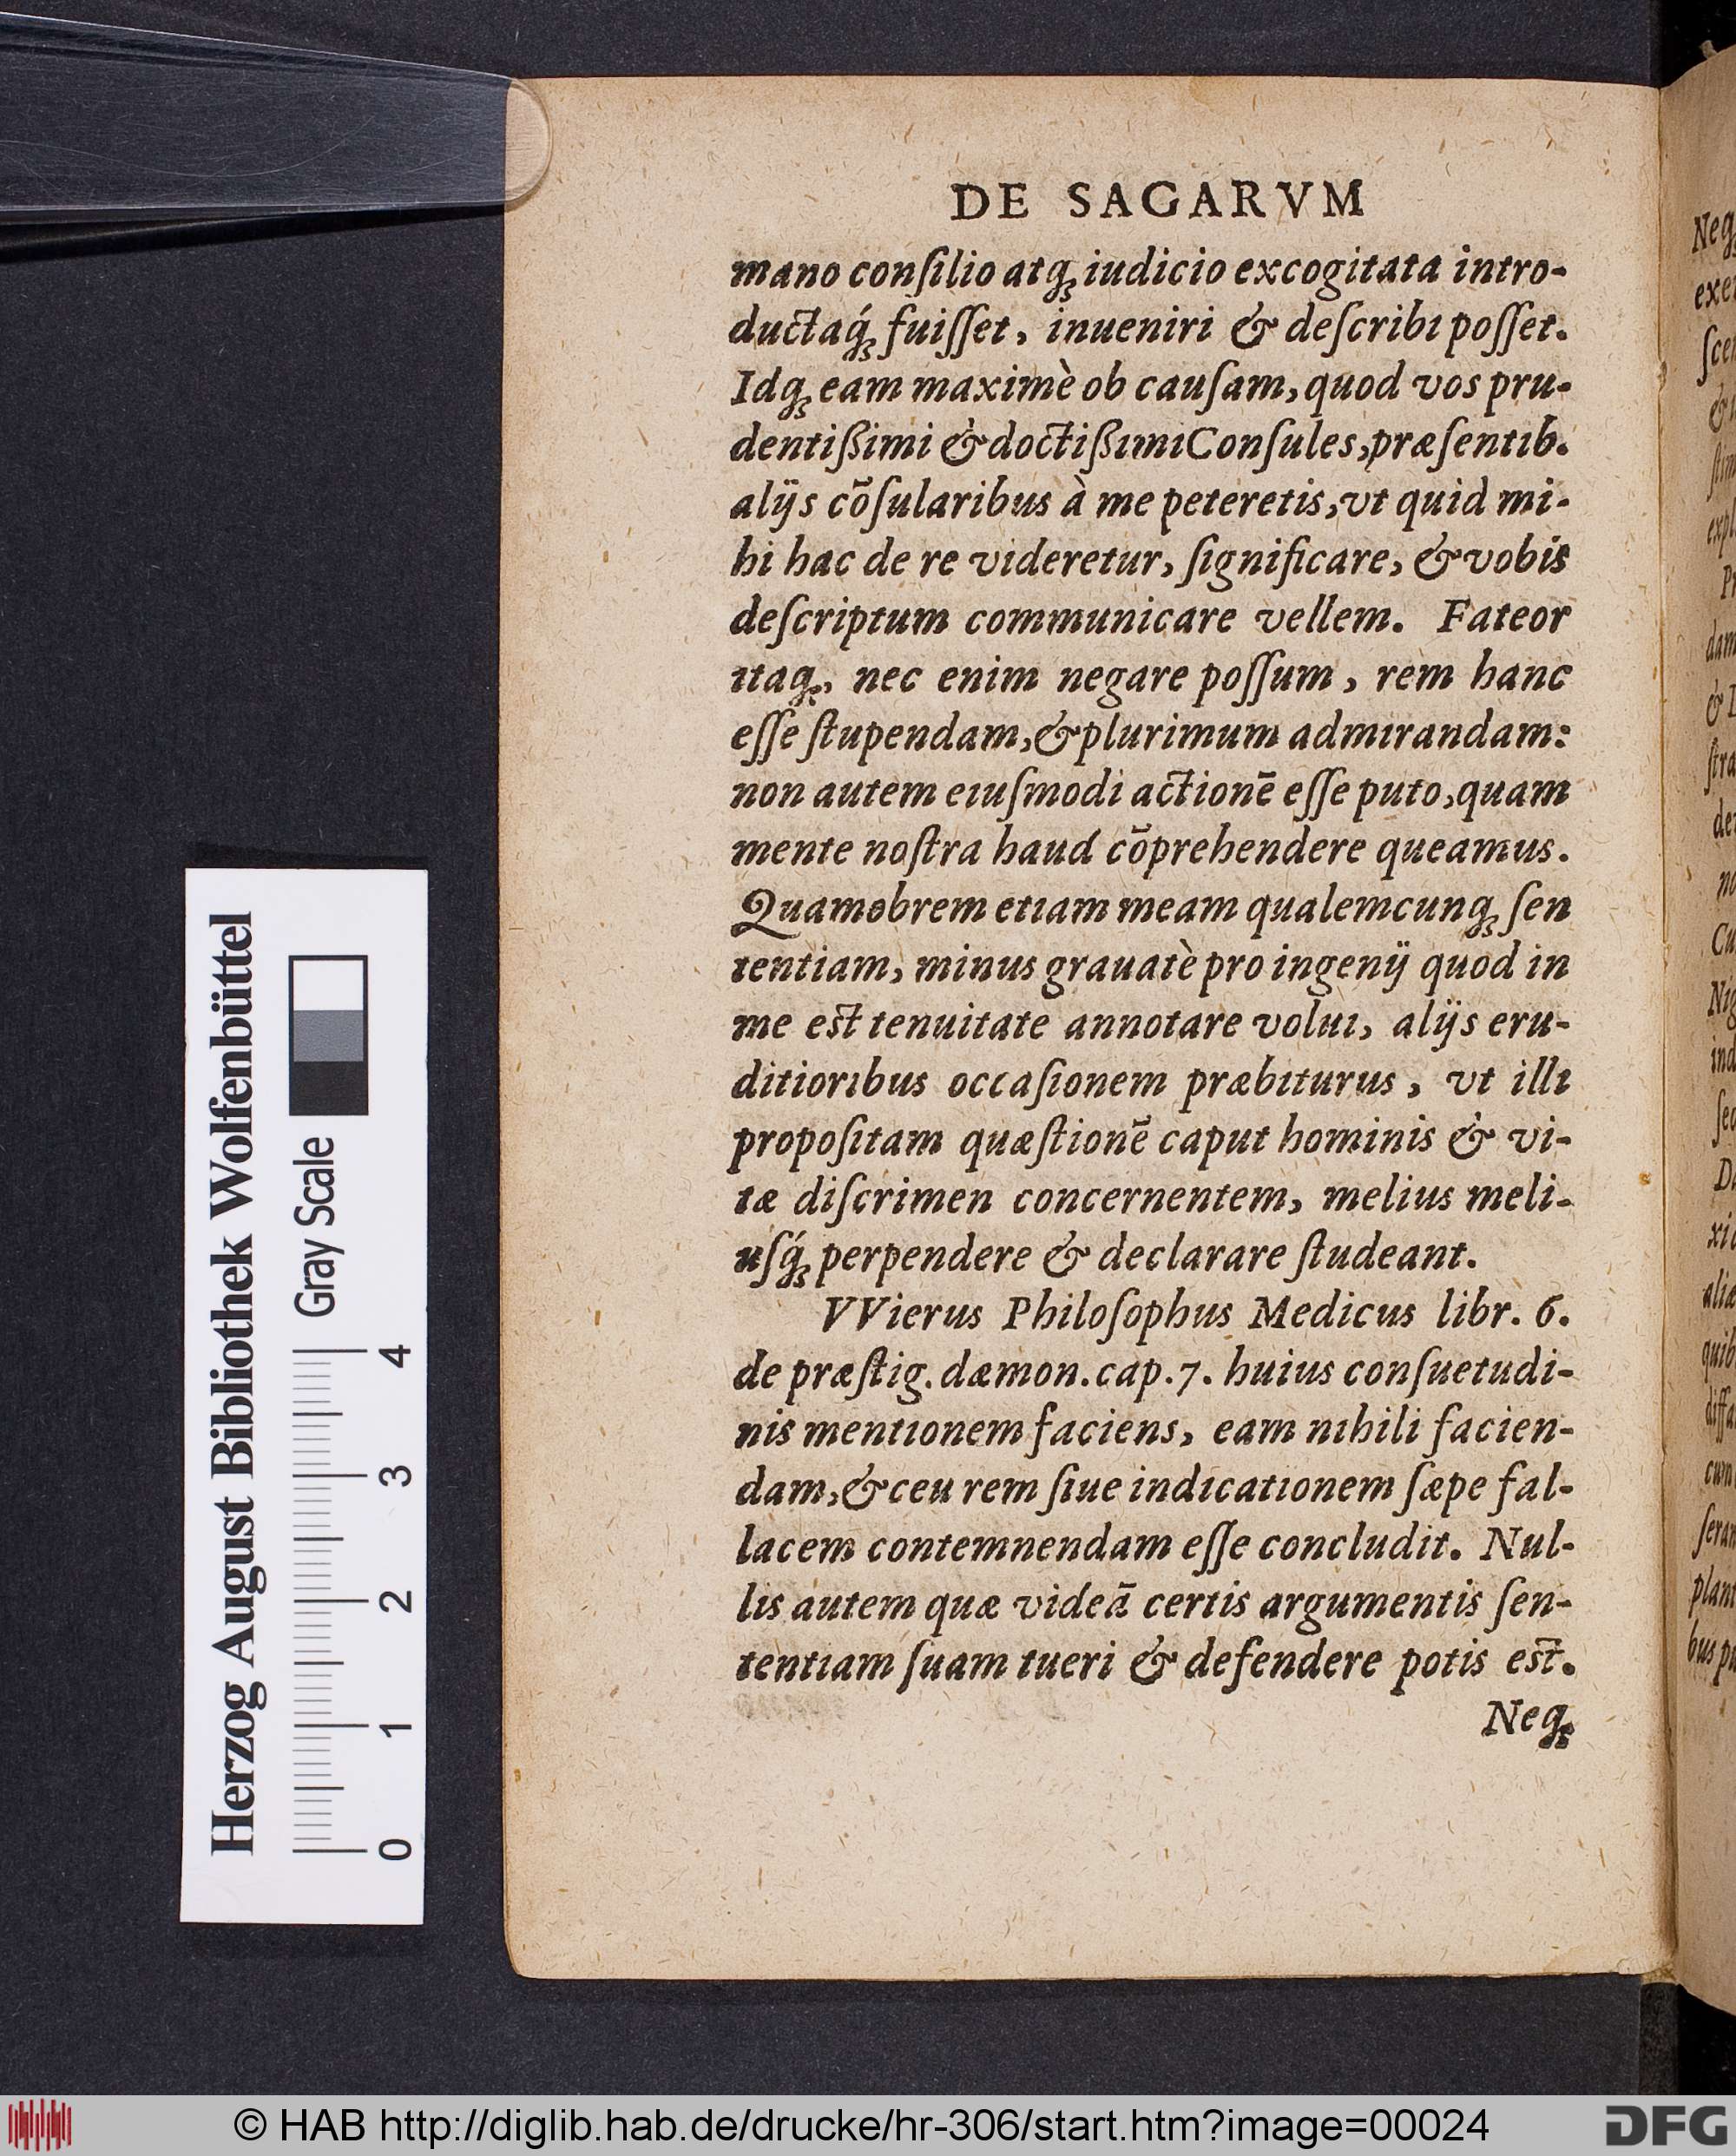 DE SAGARVM
mano conſilio atq́ꝫ iudicio excogitata intro-
ductaq́ꝫ fuiſſet, inueniri & deſcribi poſſet.
Idqꝫ eam maximè ob cauſam, quod vos pru-
dentißimi & doctißimi Conſules, præſentib.
alijs cõſularibus à me peteretis, vt quid mi-
hi hac de re videretur, ſignificare, & vobis
deſcriptum communicare vellem. Fateor
itaqꝫ, nec enim negare poſſum, rem hanc
eſſe ſtupendam, & plurimum admirandam:
non autem eiuſmodi actionē eſſe puto, quam
mente noſtra haud cõprehendere queamus.
Quamobrem etiam meam qualemcunqꝫ ſen
tentiam, minus grauatè pro ingenij quod in
me est tenuitate annotare volui, alijs eru-
ditioribus occaſionem præbiturus, vt illi
propoſitam quæſtionē caput hominis & vi-
tæ diſcrimen concernentem, melius meli-
uſq́ꝫ perpendere & declarare ſtudeant.
VVierus Philoſophus Medicus libr. 6.
de præſtig. dæmon. cap. 7. huius conſuetudi-
nis mentionem faciens, eam nihili facien-
dam, & ceu rem ſiue indicationem ſæpe fal-
lacem contemnendam eſſe concludit. Nul-
lis autem quæ videã certis argumentis ſen-
tentiam ſuam tueri & defendere potis est.
Neqꝫ
Herzog August Bibliothek Wolfenbüttel
Gray Scale
0 1 2 3 4
© HAB http://diglib.hab.de/drucke/hr-306/start.htm?image=00024
DFG